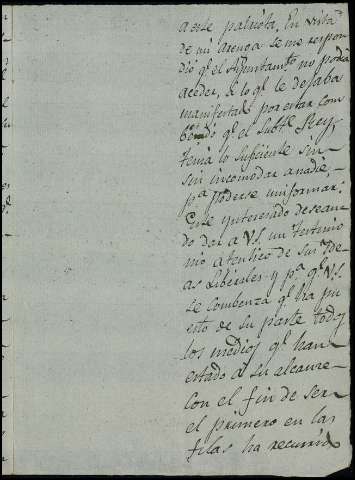 a este patriota. En vista
de mi arenga se me respon
dió qᵉ el Ayuntamtᵒ no podia
aceder, a lo qᵉ le dejaba
manifestado por estar com
bencido qᵉ el Subtᵉ Rey,
tenia lo suficiente sin
sin incomodar a nadie, -
pᵃ poderse uniformar.
Este ynteresado desean
do dar a V.S. un testimo
nio autentico de sus Yde
as Liberales y pᵃ qᵉ V.S.
se combenza qᵉ ha pu
esto de su parte todos
los medios qᵉ han
estado a su alcance -
con el fin de ser
el primero en las
filas ha recurrido